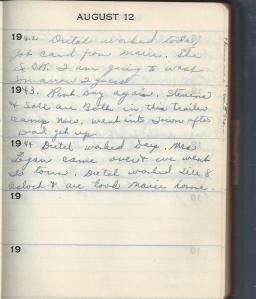 AUGUST 12
1942 Dietel worked today
got card from Marie. She
is O.K. I am going to wash
tomorrow I guess
1943. Wash Day again. Stevens
& are Both in this trailer
camp now. went into Town after
Dad got up.
1944 Dietel worked Days. Mrs
Logan came over & we went
to town. Dietel worked till 8
oclock & we took Marie home.
19
19